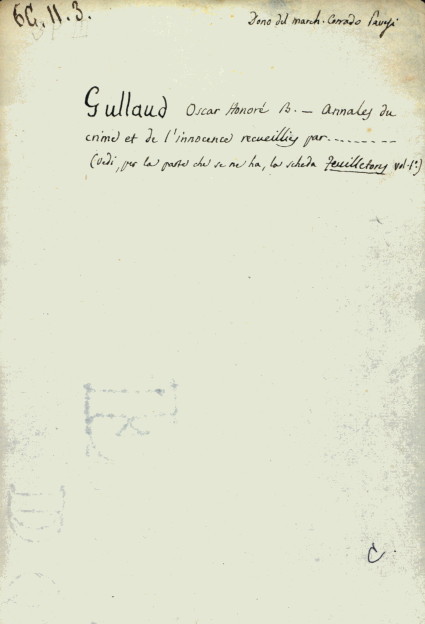 6G. 11. 3.
Dono del march. Corrado Pavesi
Gullaud Oscar Honoré B. — Annales du
crime et de l'innocence recueillies par.........
(Vedi, per la parte che se ne ha, la scheda Feuilletons vol. 1º.)
C